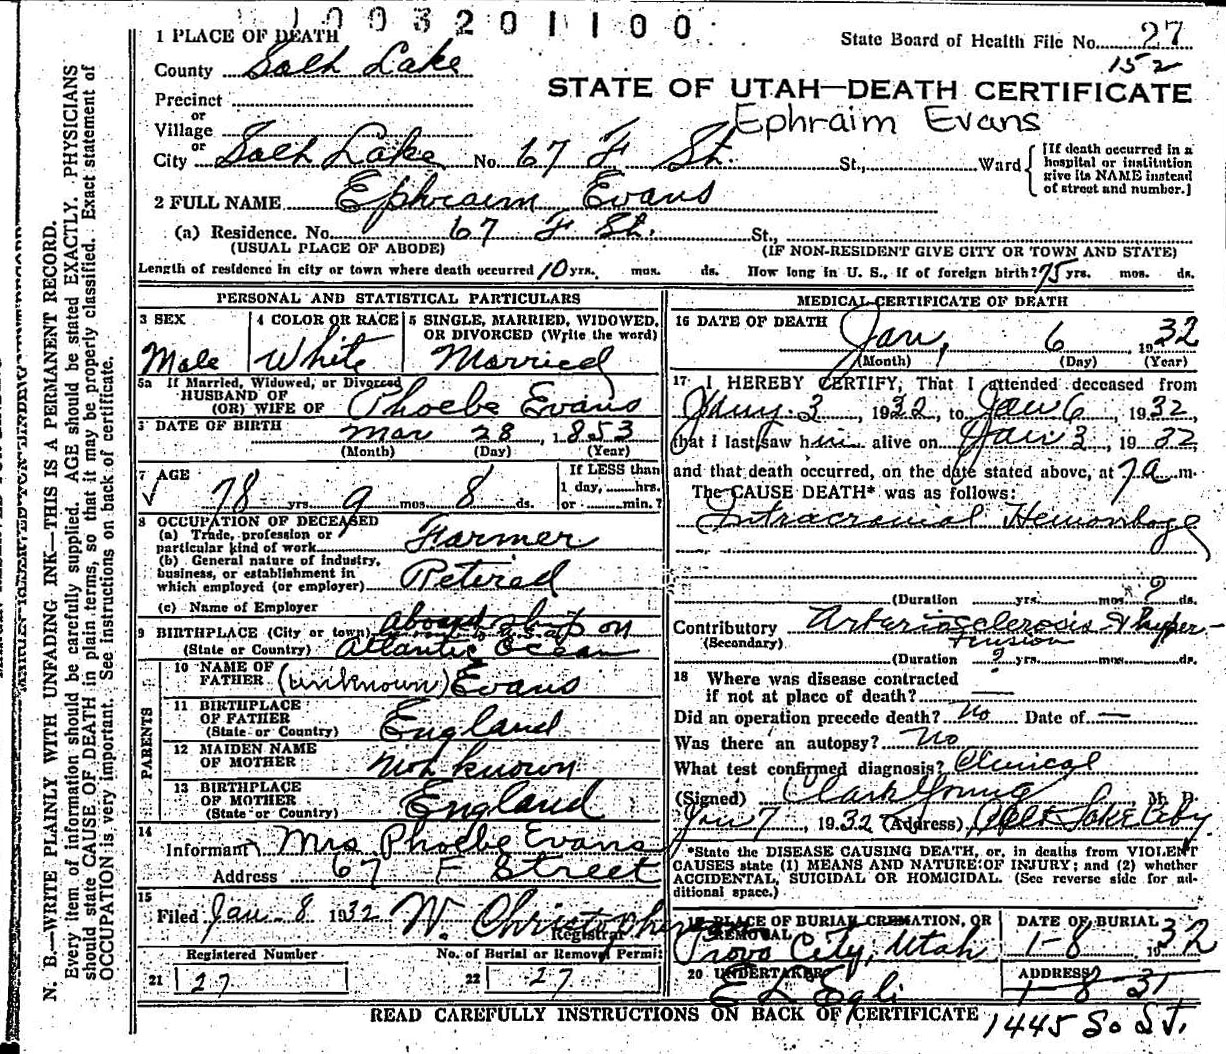 1003201100
1 PLACE OF DEATH
State Board of Health File No. 27
152
County Salt Lake
STATE OF UTAH—DEATH CERTIFICATE
Precinct
or
Ephraim Evans
Village
or
City Salt Lake No. 67 F St. St., Ward
[If death occurred in a hospital or institution give its NAME instead of street and number.]
2 FULL NAME Ephraim Evans
(a) Residence. No. 67 F St. St.,
(USUAL PLACE OF ABODE) (IF NON-RESIDENT GIVE CITY OR TOWN AND STATE)
Length of residence in city or town where death occurred 10 yrs. mos. ds. How long in U. S., if of foreign birth? 75 yrs. mos. ds.
PERSONAL AND STATISTICAL PARTICULARS
3 SEX Male
4 COLOR OR RACE White
5 SINGLE, MARRIED, WIDOWED, OR DIVORCED (Write the word) Married
5a If Married, Widowed, or Divorced
HUSBAND OF
(OR) WIFE OF Phoebe Evans
DATE OF BIRTH Mar 28, 1853
(Month) (Day) (Year)
7 AGE 78 yrs 9 mos. 8 ds.
If LESS than
1 day, hrs.
or min.?
8 OCCUPATION OF DECEASED
(a) Trade, profession or
particular kind of work Farmer
(b) General nature of industry,
business, or establishment in
which employed (or employer) Retired
(c) Name of Employer
9 BIRTHPLACE (City or town) aboard ship on
(State or Country) Atlantic Ocean
PARENTS
10 NAME OF
FATHER (unknown) Evans
11 BIRTHPLACE
OF FATHER England
(State or Country)
12 MAIDEN NAME
OF MOTHER not known
13 BIRTHPLACE
OF MOTHER England
(State or Country)
14
Informant Mrs Phoebe Evans
Address 67 F Street
15
Filed Jan - 8 1932 W. Christopherson
Registrar
Registered Number No. of Burial or Removal Permit
21 27 22 27
MEDICAL CERTIFICATE OF DEATH
16 DATE OF DEATH Jan, 6, 1932
(Month) (Day) (Year)
17 I HEREBY CERTIFY, That I attended deceased from
Jany. 3, 1932, to Jan 6, 1932,
that I last saw him alive on Jan 3, 1932
and that death occurred, on the date stated above, at 7 a m.
The CAUSE DEATH* was as follows:
Intracranial Hemorrhage
(Duration yrs. mos. ? ds.
Contributory Arteriosclerosis & hyper-
(Secondary) tension
(Duration ? yrs. mos. ds.
18 Where was disease contracted
if not at place of death? —
Did an operation precede death? No Date of —
Was there an autopsy? No
What test confirmed diagnosis? Clinical
(Signed) Clark Young M. D.
Jan 7, 1932 (Address) Salt Lake City
*State the DISEASE CAUSING DEATH, or, in deaths from VIOLENT
CAUSES state (1) MEANS AND NATURE OF INJURY; and (2) whether
ACCIDENTAL, SUICIDAL OR HOMICIDAL. (See reverse side for ad-
ditional space.)
19 PLACE OF BURIAL, CREMATION, OR
REMOVAL
Provo City, Utah
DATE OF BURIAL
1-8 1932
20 UNDERTAKER
E L Egli
ADDRESS
1-8 31
1445 So St.
READ CAREFULLY INSTRUCTIONS ON BACK OF CERTIFICATE
N. B.—WRITE PLAINLY WITH UNFADING INK—THIS IS A PERMANENT RECORD.
Every item of information should be carefully supplied. AGE should be stated EXACTLY. PHYSICIANS
should state CAUSE OF DEATH in plain terms, so that it may be properly classified. Exact statement of
OCCUPATION is very important. See instructions on back of certificate.